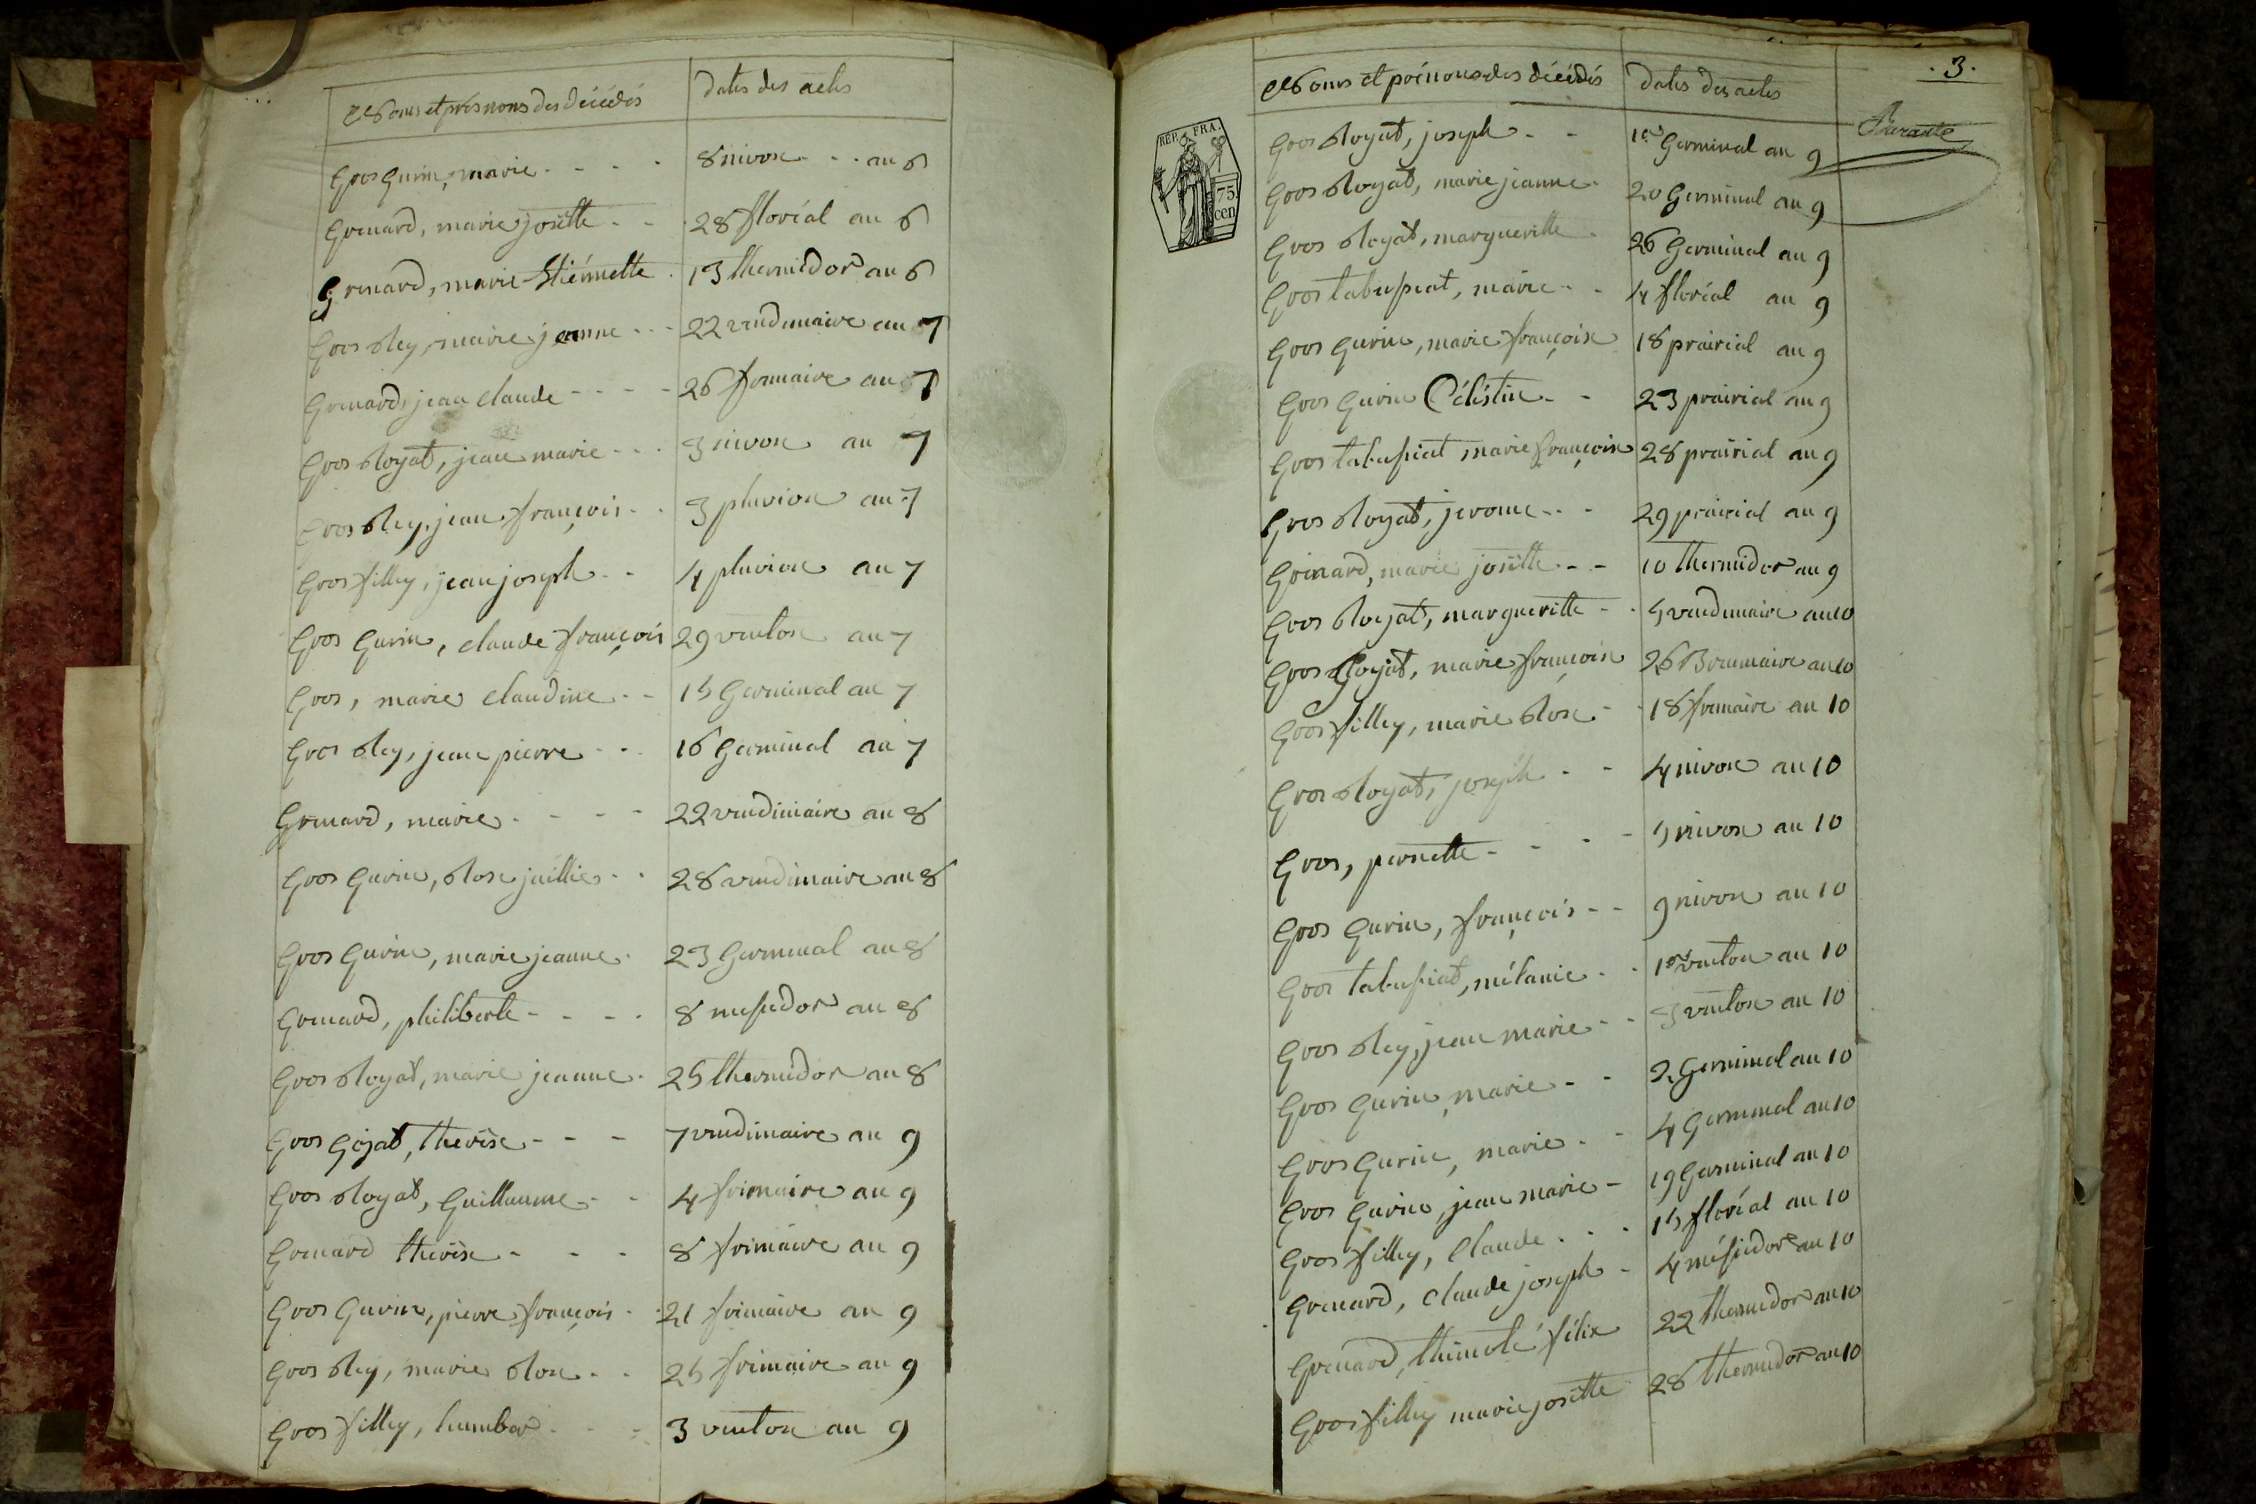 Noms et prénoms des décédés dates des actes
Gros Gurin, marie 8 nivose an 6
Grenard, marie josette 28 floréal an 6
Grenard, marie Etiennette 13 thermidor an 6
Gros Rey, marie jeanne 22 vendimaire an 7
Grenard, jean claude 26 frimaire an 7
Gros Royat, jean marie 3 nivose an 7
Gros Rey, jean françois 3 pluviose an 7
Gros filley, jean joseph 4 pluviose an 7
Gros Gurin, claude françois 29 ventose an 7
Gros, marie claudine 15 Germinal an 7
Gros Rey, jean pierre 16 Germinal an 7
Grenard, marie 22 vendimiaire an 8
Gros Gurin, Rose 28 vendimiaire an 8
Gros Gurin, marie jeanne 23 Germinal an 8
Grenard, philiberte 8 messidor an 8
Gros Royat, marie jeanne 25 thermidor an 8
Gros Gojat, therèse 7 vendimiaire an 9
Gros Royat, Guillaume 4 frimaire an 9
Grenard thérèse 8 frimaire an 9
Gros Gurin, pierre françois 21 frimaire an 9
Gros Rey, marie Rose 25 frimaire an 9
Gros filley, humber 3 ventose an 9
.3.
Noms et prénoms des décédés dates des actes
REP. FRA.
75
cen
Gros Royat, joseph 1er Germinal an 9
Gros Royat, marie jeanne 20 Germinal an 9
Gros Royat, margueritte 26 Germinal an 9
Gros tabussiat, marie 4 floréal an 9
Gros Gurin, marie françoise 18 prairial an 9
Gros Gurin Céléstin 23 prairial an 9
Gros tabussiat marie françoise 28 prairial an 9
Gros Royat, jerome 29 prairial an 9
Grenard, marie josette 10 thermidor an 9
Gros Royat, margueritte 5 vendimaire an 10
Gros Gojat, marie françoise 26 Brumaire an 10
Gros filley, marie Rose 18 frimaire an 10
Gros Royat, joseph 4 nivose an 10
Gros, pernette 5 nivose an 10
Gros Gurin, françois 9 nivose an 10
Gros tabussiat, mélanie 1er ventose an 10
Gros Rey, jean marie 3 ventose an 10
Gros Gurin, marie 2 Germinal an 10
Gros Gurin, marie 4 Germinal an 10
Gros Gurin, jean marie 19 Germinal an 10
Gros filley, Claude 15 floréal an 10
Grenard, claude joseph 4 messidor an 10
Grenard, félix 22 thermidor an 10
Gros filley marie josette 28 thermidor an 10